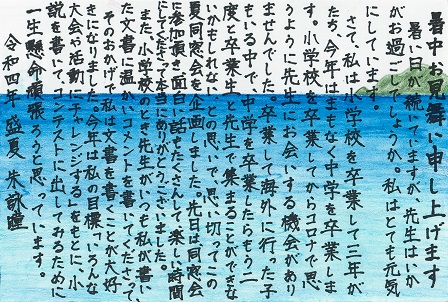 暑中お見舞い申し上げます
暑い日が続いていますが、先生はいか
がお過ごしでしょうか。私はとても元気
にしています。
さて、私は小学校を卒業して三年が
たち、今年はまもなく中学を卒業しま
す。小学校を卒業してからコロナで思
うように先生にお会いする機会があり
ませんでした。卒業して海外に行った子
もいる中で、中学を卒業したらもう二
度と卒業生と先生で集まることができな
いかもしれない、との思いで、思い切ってこの
夏同窓会を企画しました。先日は同窓会
に参加頂き面白い話もたくさんして楽しい時間
にしてくださって本当にありがとうございました。
また、小学校のとき先生がいつも私が書い
た文書に温かいコメントを書いてくださって、
そのおかげで私は文書を書くことが大好
きになりました。今年は私の目標「いろんな
大会や活動にチャレンジする」をもとに、小
説を書いて、コンテストに出してみるために
一生懸命頑張ろうと思っています。
令和四年 盛夏 朱詠瞳